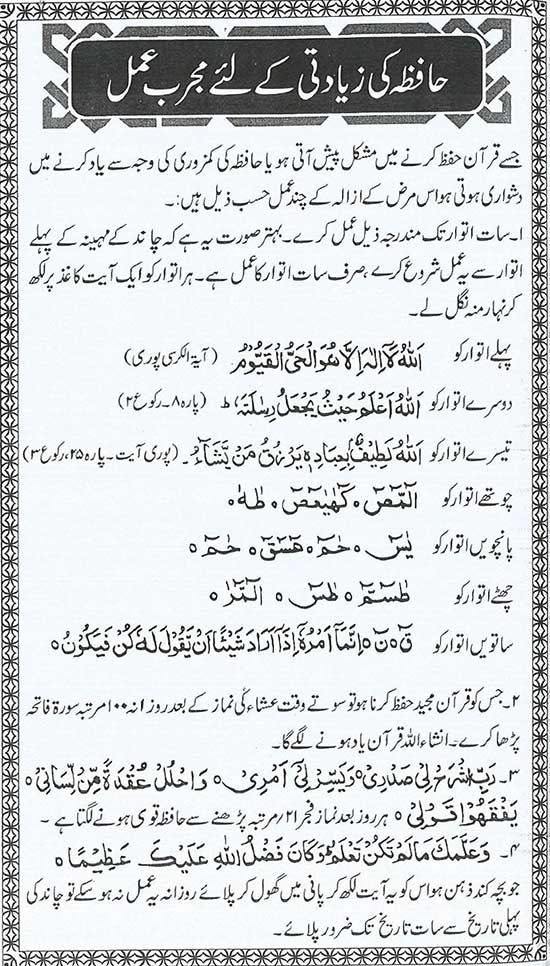 حافظہ کی زیادتی کے لئے مجرب عمل
جسے قرآن حفظ کرنے میں مشکل پیش آتی ہو یا حافظہ کی کمزوری کی وجہ سے یاد کرنے میں
دشواری ہوتی ہو اس مرض کے ازالہ کے چند عمل حسب ذیل ہیں:۔
۱۔ سات اتوار تک مندرجہ ذیل عمل کرے۔ بہتر صورت یہ ہے کہ چاند کے مہینہ کے پہلے
اتوار سے یہ عمل شروع کرے، صرف سات اتوار کا عمل ہے۔ ہر اتوار کو ایک آیت کاغذ پر لکھ
کر نہار منہ نگل لے۔
پہلے اتوار کو اَللّٰهُ لَآ اِلٰهَ اِلَّا هُوَ الْحَيُّ الْقَيُّوْمُ (آیۃ الکرسی پوری)
دوسرے اتوار کو اَللّٰهُ اَعْلَمُ حَيْثُ يَجْعَلُ رِسٰلَتَهٗ ط (پارہ ۸۔ رکوع ۲)
تیسرے اتوار کو اَللّٰهُ لَطِيْفٌۢ بِعِبَادِهٖ يَرْزُقُ مَنْ يَّشَآءُ۔ (پوری آیت۔ پارہ ۲۵، رکوع ۳)
چوتھے اتوار کو الٓمّٓصٓ ۝ كٓهٰيٰعٓصٓ ۝ طٰهٰ ۝
پانچویں اتوار کو يٰسٓ ۝ حٰمٓ ۝ عٓسٓقٓ ۝ حٰمٓ ۝
چھٹے اتوار کو طٰسٓمّٓ ۝ طٰسٓ ۝ الٓمّٓرٰ ۝
ساتویں اتوار کو قٓ ۝ نٓ ۝ اِنَّمَآ اَمْرُهٗٓ اِذَآ اَرَادَ شَيْـًٔا اَنْ يَّقُوْلَ لَهٗ كُنْ فَيَكُوْنُ ۝
۲۔ جس کو قرآن مجید حفظ کرنا ہو تو سوتے وقت عشاء کی نماز کے بعد روزانہ ۱۰۰ مرتبہ سورۃ فاتحہ
پڑھا کرے۔ انشاء اللہ قرآن یاد ہونے لگے گا۔
۳۔ رَبِّ اشْرَحْ لِيْ صَدْرِيْ ۝ وَيَسِّرْ لِيْٓ اَمْرِيْ ۝ وَاحْلُلْ عُقْدَةً مِّنْ لِّسَانِيْ ۝
يَفْقَهُوْا قَوْلِيْ ۝ ہر روز بعد نماز فجر ۲۱ مرتبہ پڑھنے سے حافظہ قوی ہونے لگتا ہے۔
۴۔ وَعَلَّمَكَ مَا لَمْ تَكُنْ تَعْلَمُ وَكَانَ فَضْلُ اللّٰهِ عَلَيْكَ عَظِيْمًا ۝
جو بچہ کند ذہن ہو اس کو یہ آیت لکھ کر پانی میں گھول کر پلائے روزانہ یہ عمل نہ ہو سکے تو چاند کی
پہلی تاریخ سے سات تاریخ تک ضرور پلائے۔